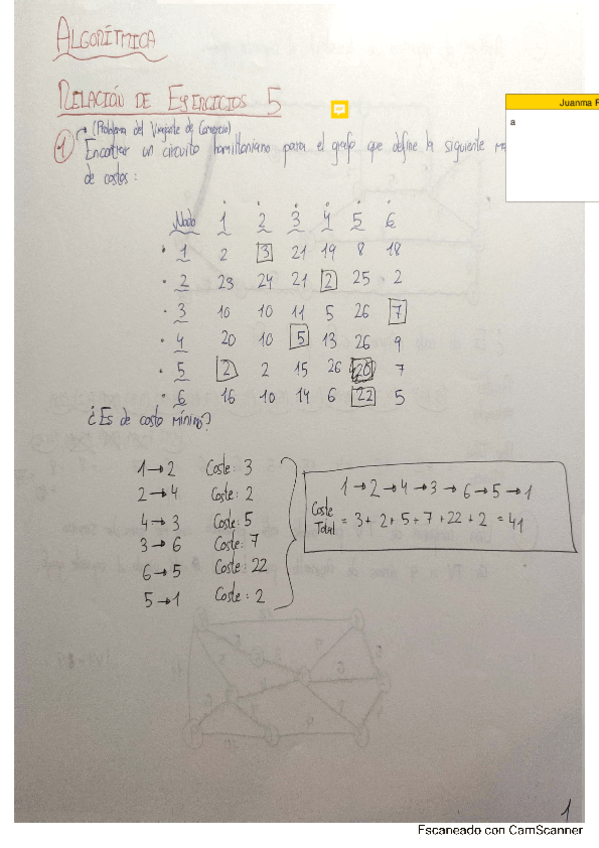 ALGORÍTMICA
RELACIÓN DE EJERCICIOS 5
Juanma
a
(Problema del Viajante de Comercio)
1 Encontrar un circuito hamiltoniano para el grafo que define la siguiente
de costos:
Nodo 1 2 3 4 5 6
1 2 3 21 19 8 18
2 23 24 21 2 25 2
3 10 10 11 5 26 7
4 20 10 5 13 26 9
5 2 2 15 26 20 7
6 16 10 14 6 22 5
¿Es de costo mínimo?
1→2 Coste: 3
2→4 Coste: 2
4→3 Coste: 5
3→6 Coste: 7
6→5 Coste: 22
5→1 Coste: 2
1→2→4→3→6→5→1
Coste Total = 3+2+5+7+22+2 = 41
1
Escaneado con CamScanner